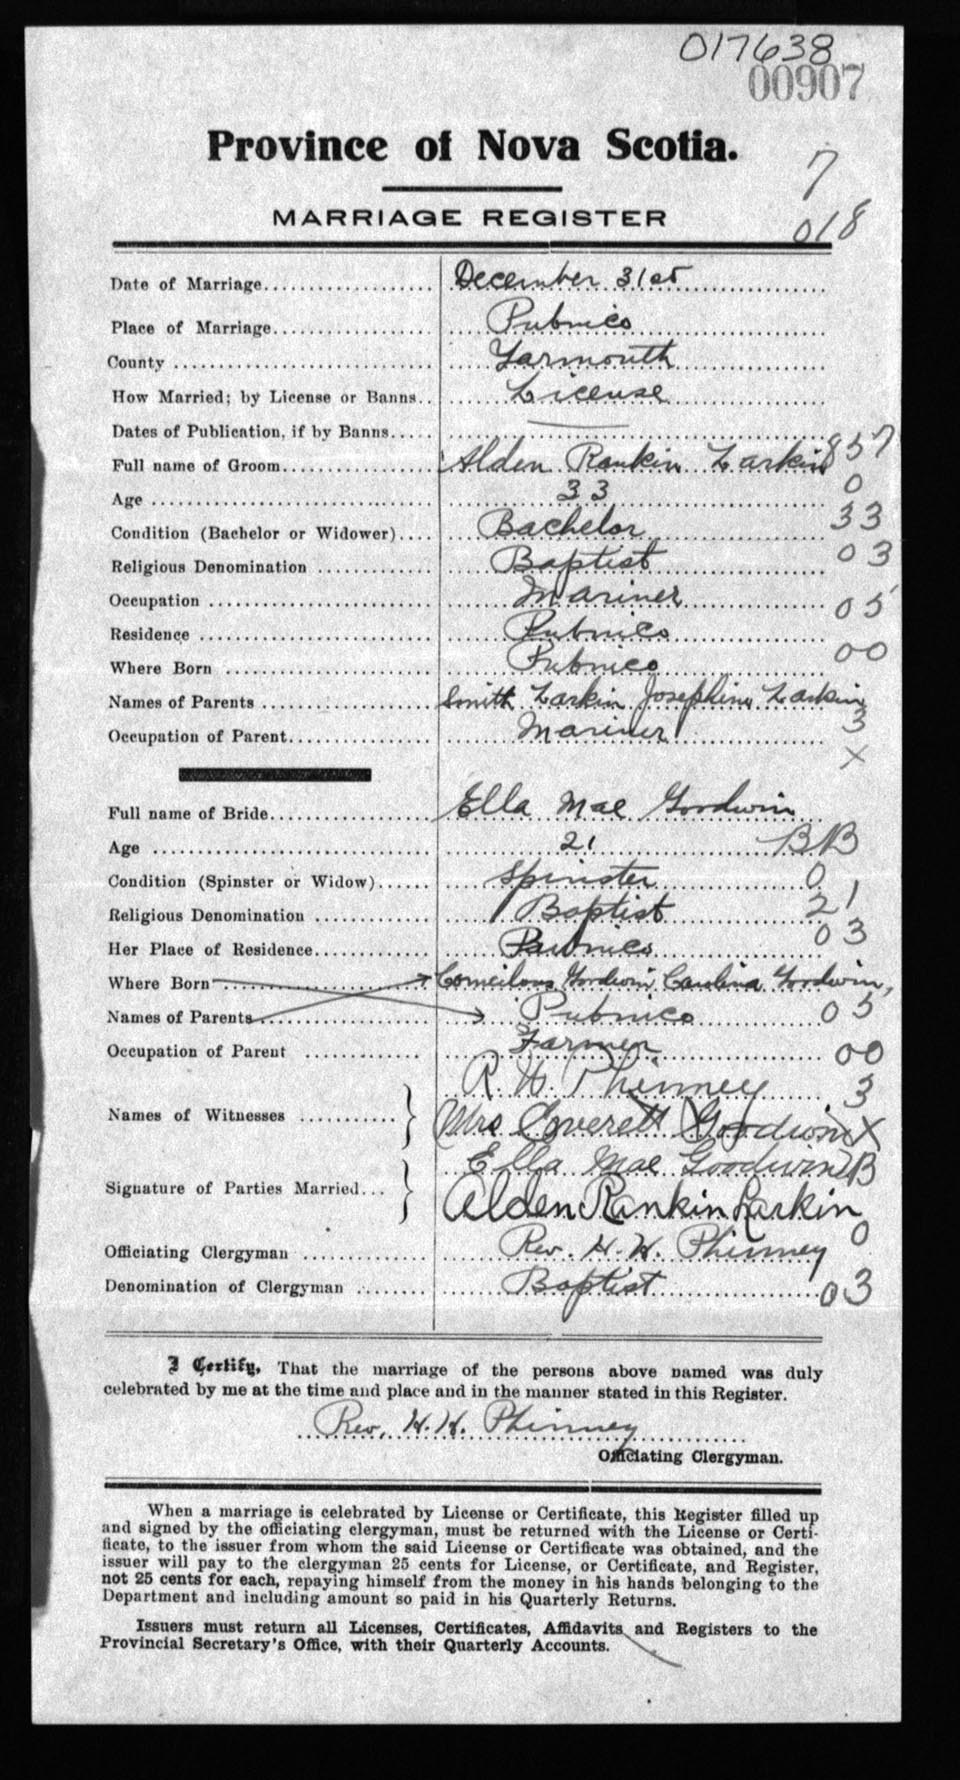 017638
00907
Province of Nova Scotia.
7
MARRIAGE REGISTER
018
Date of Marriage................... December 31st
Place of Marriage................. Pubnico
County ............................. Yarmouth
How Married; by License or Banns.. License
Dates of Publication, if by Banns.....
857
Full name of Groom................ Alden Rankin Larkin
0
Age ............................... 33
33
Condition (Bachelor or Widower).... Bachelor
03
Religious Denomination ............. Baptist
Occupation ......................... Mariner
05
Residence .......................... Pubnico
00
Where Born ........................ Pubnico
Names of Parents ................... Smith Larkin Josephine Larkin
3
Occupation of Parent................ Mariner
X
Full name of Bride.................. Ella Mae Goodwin
Age ................................ 21
BB
Condition (Spinster or Widow)...... Spinster
0
Religious Denomination ............. Baptist
21
Her Place of Residence............. Pubnico
03
Where Born ........................ Goodwin Goodwin,
Names of Parents................... Pubnico
05
Occupation of Parent .............. Farmer
00
R. W. Phinney
3
Names of Witnesses ........... }
Mrs Everett Goodwin X
Ella Mae Goodwin B
Signature of Parties Married... }
Alden Rankin Larkin
0
Officiating Clergyman .............. Rev. H. H. Phinney
Denomination of Clergyman ......... Baptist
03
I Certify, That the marriage of the persons above named was duly
celebrated by me at the time and place and in the manner stated in this Register.
Rev. H. H. Phinney
Officiating Clergyman.
When a marriage is celebrated by License or Certificate, this Register filled up
and signed by the officiating clergyman, must be returned with the License or Certi-
ficate, to the issuer from whom the said License or Certificate was obtained, and the
issuer will pay to the clergyman 25 cents for License, or Certificate, and Register,
not 25 cents for each, repaying himself from the money in his hands belonging to the
Department and including amount so paid in his Quarterly Returns.
Issuers must return all Licenses, Certificates, Affidavits and Registers to the
Provincial Secretary's Office, with their Quarterly Accounts.